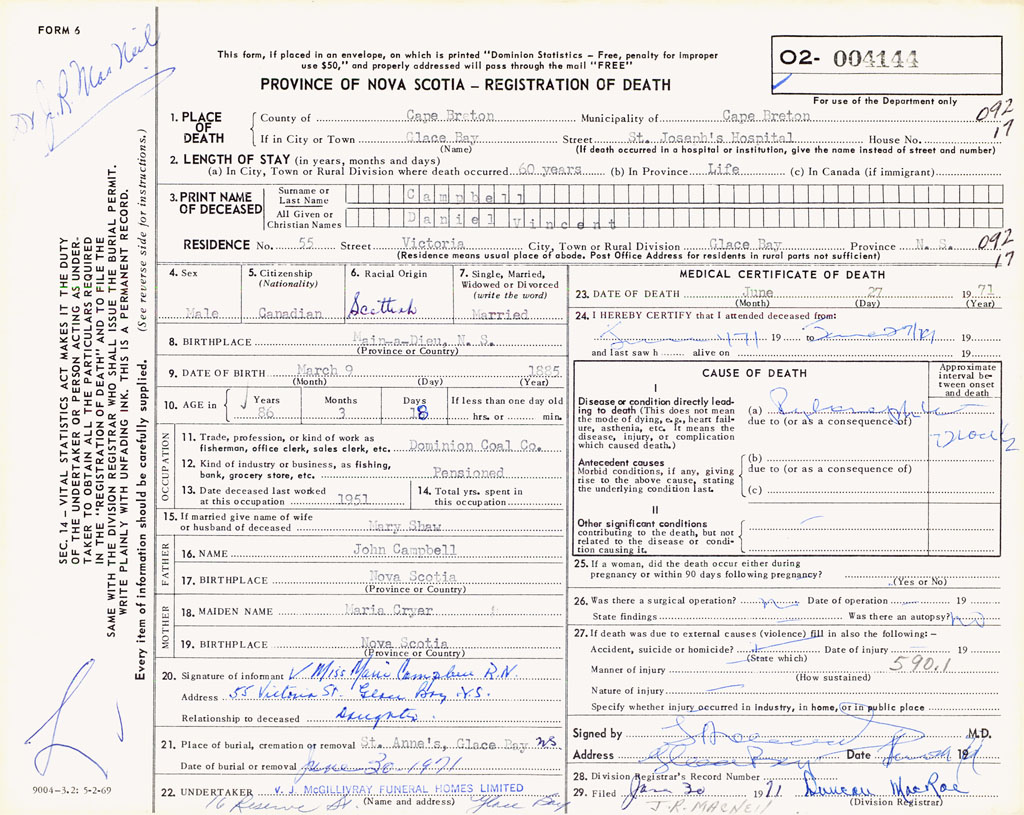 FORM 6
Dr J.R. MacNeil
This form, if placed in an envelope, on which is printed "Dominion Statistics – Free, penalty for improper
use $50," and properly addressed will pass through the mail "FREE"
PROVINCE OF NOVA SCOTIA – REGISTRATION OF DEATH
02- 004144
For use of the Department only
092
17
1. PLACE OF DEATH
County of Cape Breton Municipality of Cape Breton
If in City or Town Glace Bay Street St. Joseph's Hospital House No.
(Name) (If death occurred in a hospital or institution, give the name instead of street and number)
2. LENGTH OF STAY (in years, months and days)
(a) In City, Town or Rural Division where death occurred 60 years (b) In Province Life (c) In Canada (if immigrant)
3. PRINT NAME OF DECEASED
Surname or Last Name Campbell
All Given or Christian Names Daniel Vincent
RESIDENCE No. 55 Street Victoria City, Town or Rural Division Glace Bay Province N. S. 092
(Residence means usual place of abode. Post Office Address for residents in rural parts not sufficient) 17
4. Sex
Male
5. Citizenship
(Nationality)
Canadian
6. Racial Origin
Scottish
7. Single, Married,
Widowed or Divorced
(write the word)
Married
8. BIRTHPLACE Main-a-Dieu, N. S.
(Province or Country)
9. DATE OF BIRTH March 9 1885
(Month) (Day) (Year)
10. AGE in Years Months Days If less than one day old
86 3 18 hrs. or min.
OCCUPATION
11. Trade, profession, or kind of work as
fisherman, office clerk, sales clerk, etc. Dominion Coal Co.
12. Kind of industry or business, as fishing,
bank, grocery store, etc. Pensioned
13. Date deceased last worked
at this occupation 1951
14. Total yrs. spent in
this occupation
15. If married give name of wife
or husband of deceased Mary Shaw
FATHER
16. NAME John Campbell
17. BIRTHPLACE Nova Scotia
(Province or Country)
MOTHER
18. MAIDEN NAME Maria Cryer
19. BIRTHPLACE Nova Scotia
(Province or Country)
20. Signature of informant Miss Marie Campbell R.N.
Address 55 Victoria St. Glace Bay N.S.
Relationship to deceased Daughter.
21. Place of burial, cremation or removal St. Anne's, Glace Bay NS
Date of burial or removal June 30 1971
22. UNDERTAKER V. J. McGILLIVRAY FUNERAL HOMES LIMITED
(Name and address)
16 Reserve St. Glace Bay
MEDICAL CERTIFICATE OF DEATH
23. DATE OF DEATH June 27 1971
(Month) (Day) (Year)
24. I HEREBY CERTIFY that I attended deceased from:
19 to June 27/71 19
and last saw h alive on 19
CAUSE OF DEATH
Approximate
interval be-
tween onset
and death
I
Disease or condition directly lead-
ing to death (This does not mean
the mode of dying, e.g., heart fail-
ure, asthenia, etc. It means the
disease, injury, or complication
which caused death.)
(a)
due to (or as a consequence of)
Antecedent causes
Morbid conditions, if any, giving
rise to the above cause, stating
the underlying condition last.
(b)
due to (or as a consequence of)
(c)
II
Other significant conditions
contributing to the death, but not
related to the disease or condi-
tion causing it.
25. If a woman, did the death occur either during
pregnancy or within 90 days following pregnancy?
(Yes or No)
26. Was there a surgical operation? Date of operation 19
State findings Was there an autopsy? No
27. If death was due to external causes (violence) fill in also the following: –
Accident, suicide or homicide? Date of injury 19
(State which)
Manner of injury 590.1
(How sustained)
Nature of injury
Specify whether injury occurred in industry, in home, or in public place
Signed by M.D.
Address Glace Bay Date 19
28. Division Registrar's Record Number
29. Filed June 30 1971 Duncan MacRae
(Division Registrar)
J.R. MACNEIL
SEC. 14 – VITAL STATISTICS ACT MAKES IT THE DUTY
OF THE UNDERTAKER OR PERSON ACTING AS UNDER-
TAKER TO OBTAIN ALL THE PARTICULARS REQUIRED
IN THE "REGISTRATION OF DEATH" AND TO FILE THE
SAME WITH THE DIVISION REGISTRAR WHO SHALL ISSUE THE BURIAL PERMIT.
WRITE PLAINLY WITH UNFADING INK. THIS IS A PERMANENT RECORD.
Every item of information should be carefully supplied. (See reverse side for instructions.)
9004-3.2: 5-2-69